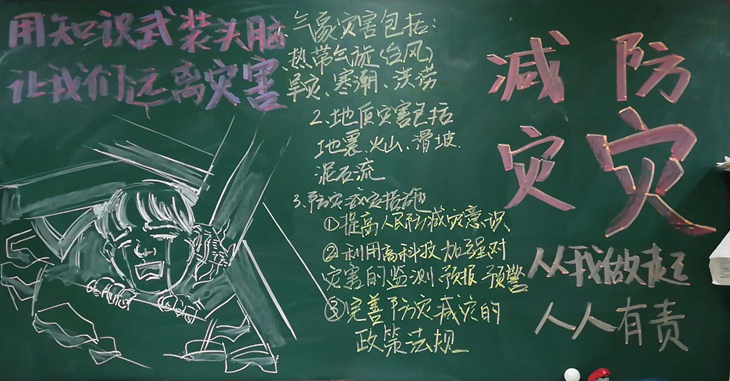 用知识武装头脑
让我们远离灾害
气象灾害包括:
热带气旋(台风)
旱灾、寒潮、洪涝
2.地质灾害包括
地震、火山、滑坡、
泥石流
3.防灾减灾措施
①提高人民防减灾意识
②利用高科技加强对
灾害的监测预报预警
③完善防灾减灾的
政策法规
减 防
灾 灾
从我做起
人人有责